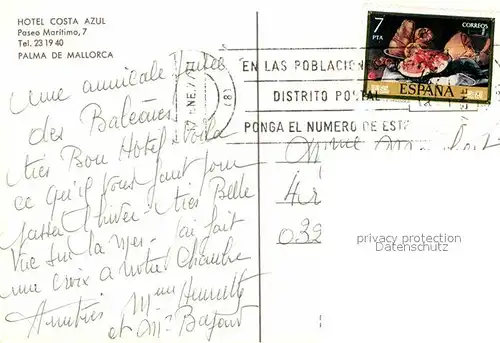 HOTEL COSTA AZUL
Paseo Marítimo, 7
Tel. 23 19 40
PALMA DE MALLORCA
Une amicale pensée
des Baléares
très Bon Hotel - Voilà
ce qu'il vous faut pour
passer l'hiver - très Belle
Vue sur la mer - j'ai fait
une croix à notre Chambre
Amitiés Mme
et Mr
7
PTA
CORREOS
ESPAÑA
EN LAS POBLACIONES
DISTRITO POSTAL
PONGA EL NUMERO DE ESTE
ENE.
(81)
Mme
032
privacy protection
Datenschutz